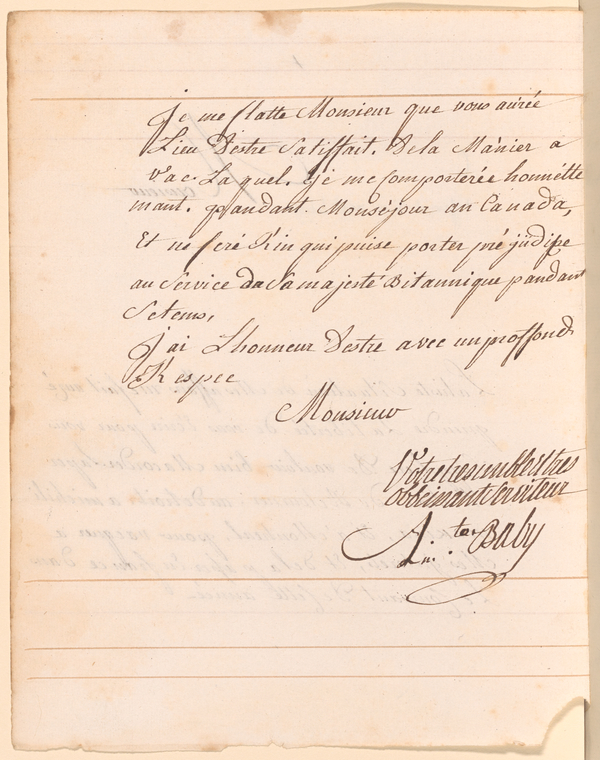 Je me flatte Monsieur que vous aurée
Lieu Destre Satiffait. De la Mànier a
Vac. La quel. Je me Comporterée honnétte
mant. pandant. Monséjour an Canada,
Et ne feré Rïn qui puise porter préjüdise
au Service de Sa majesté Bitannique pandant
Setems,
J'ai Lhonneur Destre avec un proffond
Respec
Monsieur
Votre tres umble & tres
obeissant Serviteur
Baby